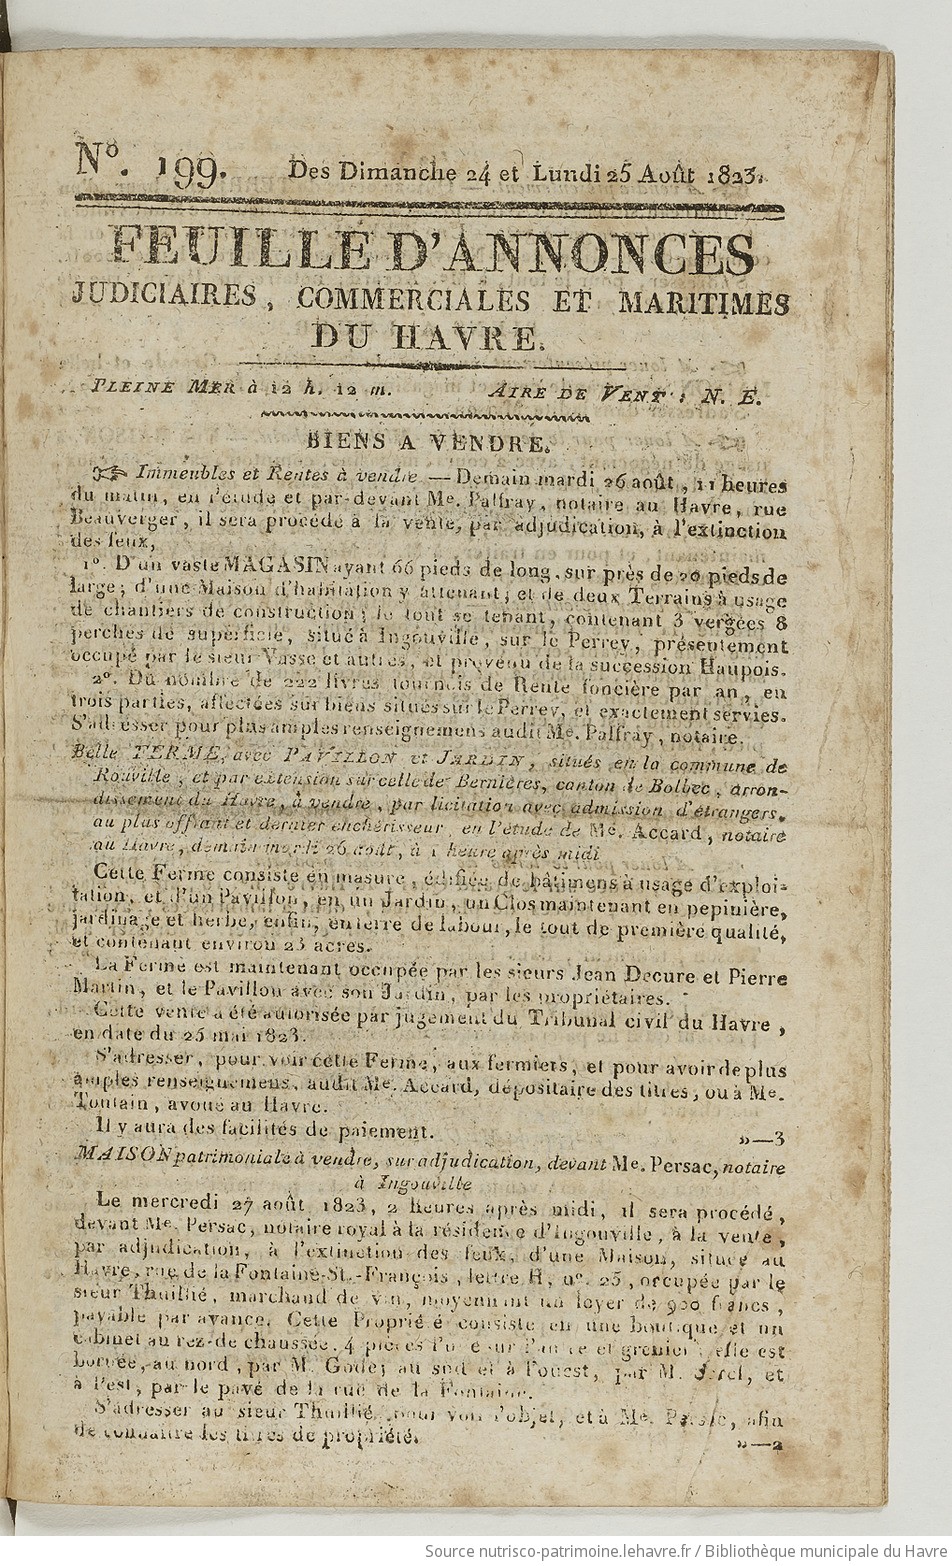 Nº. 199. Des Dimanche 24 et Lundi 25 Août 1823.
FEUILLE D'ANNONCES
JUDICIAIRES, COMMERCIALES ET MARITIMES
DU HAVRE.
PLEINE MER à 12 h. 12 m. AIRE DE VENT : N. E.
BIENS A VENDRE.
☞ Immeubles et Rentes à vendre — Demain mardi 26 août, 11 heures
du matin, en l'étude et par-devant Me. Palfray, notaire au Havre, rue
Beauverger, il sera procédé à la vente, par adjudication, à l'extinction
des feux,
1º. D'un vaste MAGASIN ayant 66 pieds de long, sur près de 20 pieds de
large; d'une Maison d'habitation y attenant; et de deux Terrains à usage
de chantiers de construction; le tout se tenant, contenant 3 vergées 8
perches de superficie, situé à Ingouville, sur le Perrey, présentement
occupé par le sieur Vasse et autres, et provenu de la succession Haupois.
2º. Du nombre de 222 livres tournois de Rente foncière par an, en
trois parties, affectées sur biens situés sur le Perrey, et exactement servies.
S'adresser pour plus amples renseignemens audit Me. Palfray, notaire.
Belle FERME, avec PAVILLON et JARDIN, situés en la commune de
Rouville, et par extension sur celle de Bernières, canton de Bolbec, arron-
dissement du Havre, à vendre, par licitation avec admission d'étrangers,
au plus offrant et dernier enchérisseur, en l'étude de Me. Accard, notaire
au Havre, demain mardi 26 août, à 1 heure après midi
Cette Ferme consiste en masure, édifiée de bâtimens à usage d'exploi-
tation, et d'un Pavillon, en un Jardin, un Clos maintenant en pepinière,
jardinage et herbe, enfin, en terre de labour, le tout de première qualité,
et contenant environ 23 acres.
La Ferme est maintenant occupée par les sieurs Jean Decure et Pierre
Martin, et le Pavillon avec son Jardin, par les propriétaires.
Cette vente a été autorisée par jugement du Tribunal civil du Havre,
en date du 25 mai 1823.
S'adresser, pour voir cette Ferme, aux fermiers, et pour avoir de plus
amples renseignemens, audit Me. Accard, dépositaire des titres, ou à Me.
Toutain, avoué au Havre.
Il y aura des facilités de paiement. »—3
MAISON patrimoniale à vendre, sur adjudication, devant Me. Persac, notaire
à Ingouville
Le mercredi 27 août 1823, 2 heures après midi, il sera procédé,
devant Me. Persac, notaire royal à la résidence d'Ingouville, à la vente,
par adjudication, à l'extinction des feux, d'une Maison, située au
Havre, rue de la Fontaine-St.-François, lettre H, nº. 25, occupée par le
sieur Thuillié, marchand de vin, moyennant un loyer de 900 francs,
payable par avance. Cette Propriété consiste en une boutique et un
cabinet au rez-de chaussée, 4 pièces l'une sur l'autre et grenier; elle est
bornée, au nord, par M. Gode; au sud et à l'ouest, par M. et
à l'est, par le pavé de la rue de la Fontaine.
S'adresser au sieur Thuillié, pour voir l'objet, et à Me. Persac, afin
de connaître les titres de propriété. »—2
Source nutrisco-patrimoine.lehavre.fr / Bibliothèque municipale du Havre